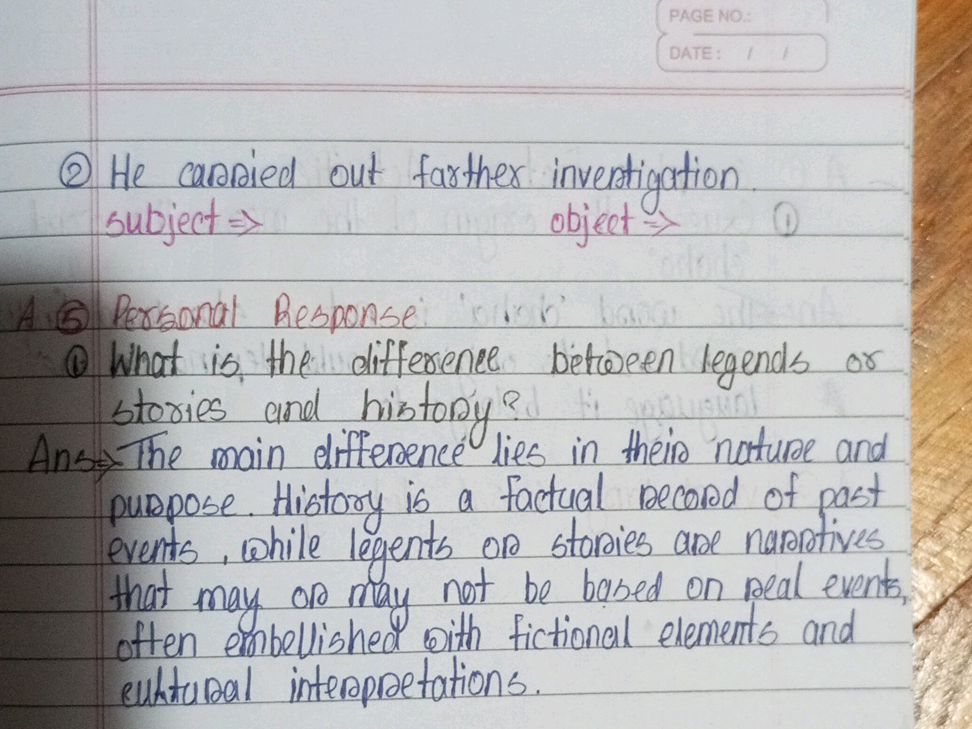 PAGE NO.:
DATE: / /
② He carried out farther investigation.
subject ⇒ object ⇒ ①
A ⑤ Personal Response
① What is the difference between legends or
stories and history?
Ans⇒ The main difference lies in their nature and
purpose. History is a factual record of past
events, while legents or stories are narrotives
that may or may not be based on real events,
often embellished with fictional elements and
cultural interpretations.